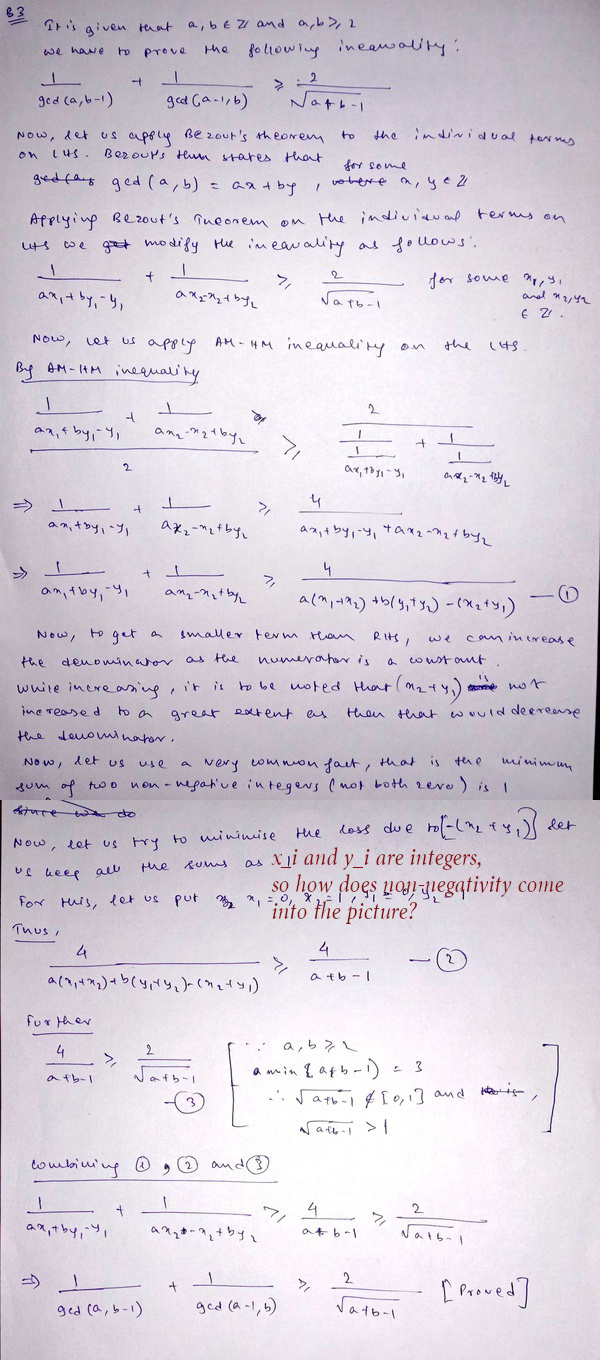 B3
It is given that a, b ∈ ℤ and a, b ≥ 2
we have to prove the following inequality:
1/gcd(a, b-1) + 1/gcd(a-1, b) ≥ 2/√(a+b-1)
Now, let us apply Bezout's theorem to the individual terms
on LHS. Bezout's thm states that
gcd(a, b) = ax + by, for some x, y ∈ ℤ
Applying Bezout's Theorem on the individual terms on
LHS we modify the inequality as follows:
1/(ax₁+by₁-y₁) + 1/(ax₂-x₂+by₂) ≥ 2/√(a+b-1) for some x₁, y₁ and x₂, y₂ ∈ ℤ.
Now, let us apply AM-HM inequality on the LHS.
By AM-HM inequality
(1/(ax₁+by₁-y₁) + 1/(ax₂-x₂+by₂))/2 ≥ 2/(1/(1/(ax₁+by₁-y₁)) + 1/(1/(ax₂-x₂+by₂)))
⇒ 1/(ax₁+by₁-y₁) + 1/(ax₂-x₂+by₂) ≥ 4/(ax₁+by₁-y₁+ax₂-x₂+by₂)
⇒ 1/(ax₁+by₁-y₁) + 1/(ax₂-x₂+by₂) ≥ 4/(a(x₁+x₂)+b(y₁+y₂)-(x₂+y₁)) — ①
Now, to get a smaller term than RHS, we can increase
the denominator as the numerator is a constant.
While increasing, it is to be noted that (x₂+y₁) is not
increased to a great extent as then that would decrease
the denominator.
Now, let us use a very common fact, that is the minimum
sum of two non-negative integers (not both zero) is 1
since we do
Now, let us try to minimise the loss due to [-(x₂+y₁)] let
us keep all the sums as
x_i and y_i are integers,
so how does non-negativity come
into the picture?
For this, let us put x₁=0, x₂=1, y₁=0, y₂=1
Thus,
4/(a(x₁+x₂)+b(y₁+y₂)-(x₂+y₁)) ≥ 4/(a+b-1) — ②
Further
4/(a+b-1) ≥ 2/√(a+b-1) — ③
[∵ a, b ≥ 2
min(a+b-1) = 3
∴ √(a+b-1) ∉ [0,1] and
√(a+b-1) > 1]
Combining ①, ② and ③
1/(ax₁+by₁-y₁) + 1/(ax₂-x₂+by₂) ≥ 4/(a+b-1) ≥ 2/√(a+b-1)
⇒ 1/gcd(a, b-1) + 1/gcd(a-1, b) ≥ 2/√(a+b-1) [Proved]